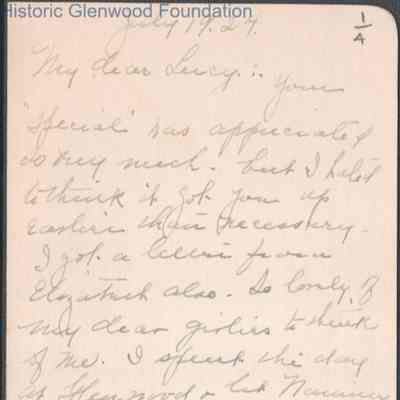 Historic Glenwood Foundation
July 19. 27.
1/4
My dear Lucy :.
Your
"special" was appreciated
so very much. but I hated
to think it got you up
earlier than necessary.
I got a letter from
Elizabeth also. So lovely of
my dear girlies to think
of me. I spent the day
at Glenwood & let